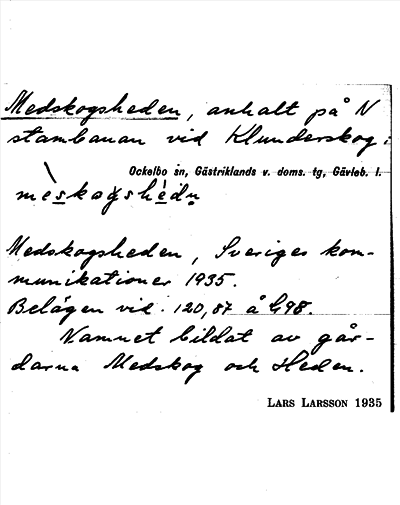 Medskogsheden, anhalt på N
stambanan vid Klunderskog i
Ockelbo sn, Gästriklands v. doms. tg, Gävleb. l.
mèskogshédn
Medskogsheden, Sveriges kom-
munikationer 1935.
Belägen vid 120,87 å G98.
Namnet bildat av går-
darna Medskog och Heden.
LARS LARSSON 1935